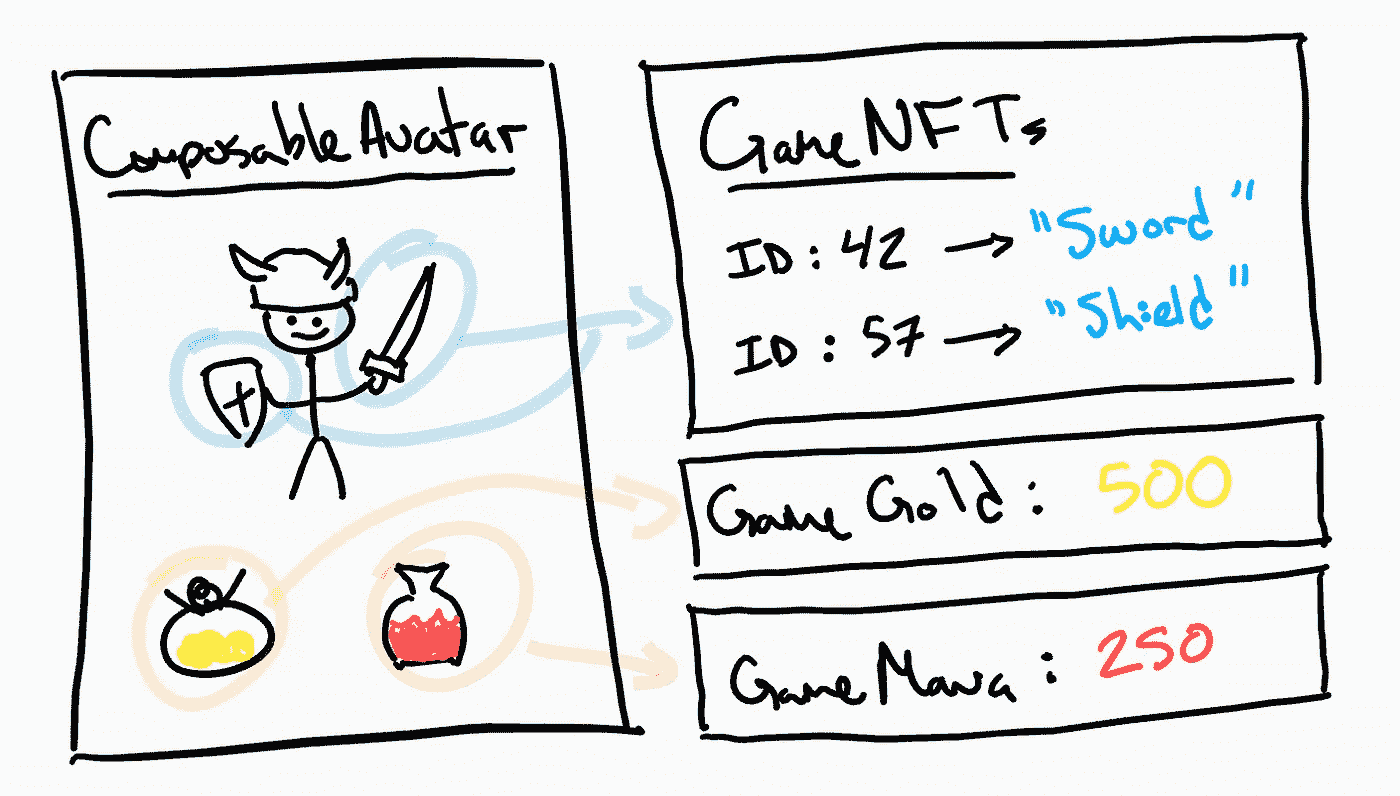 Composable Avatar
Game NFTs
ID: 42 → "Sword"
ID: 57 → "Shield"
Game Gold: 500
Game Mana: 250